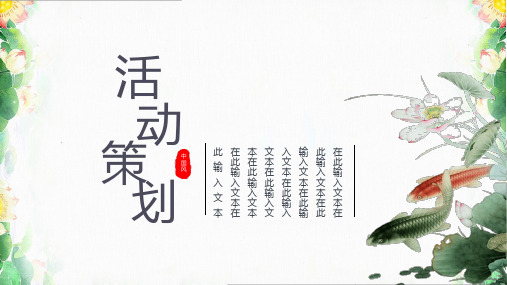 活动策划
中国风
在此输入文本在
此输入文本在此
输入文本在此输
入文本在此输入
文本在此输入文
本在此输入文本
在此输入文本在
此输入文本